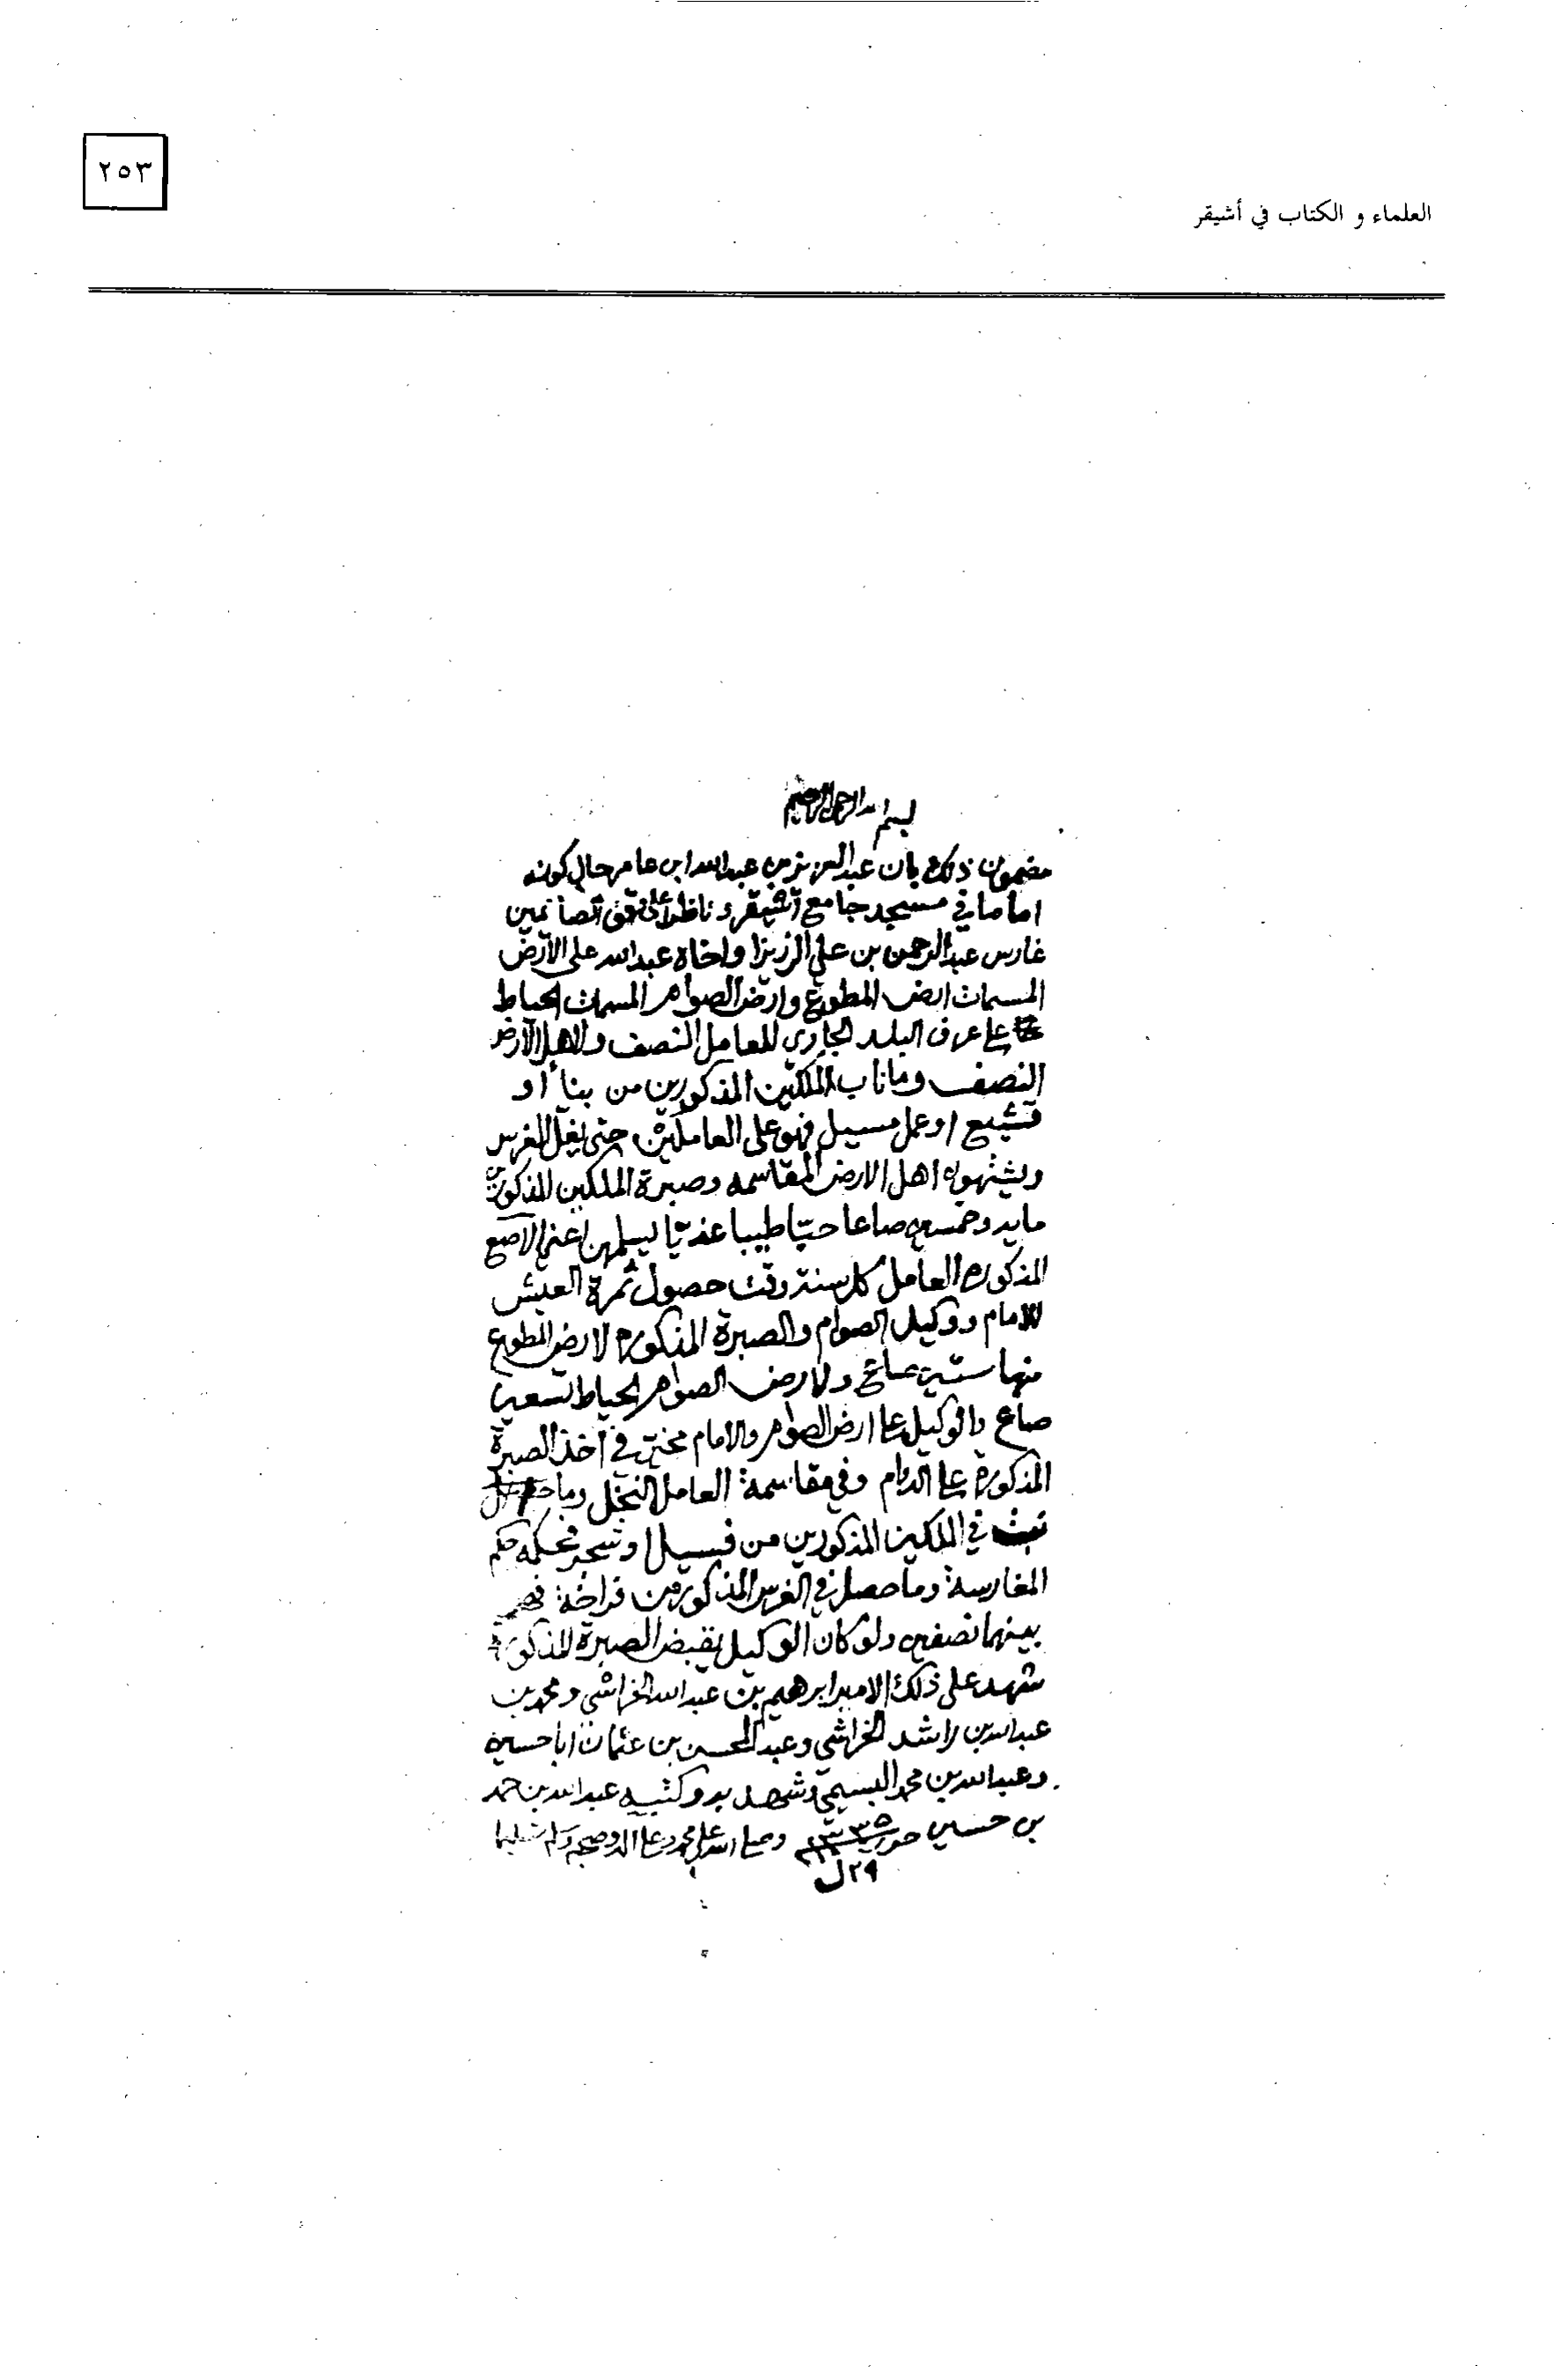 ٢٥٣
العلماء و الكتاب في أشيقر
بسم الله الرحمن الرحيم
مضمون ذلك بان عبدالعزيز بن عبدالله ابن عامر حال كونه
اماما في مسجد جامع أشيقر وناظرا على وقف الصائمين
غارس عبدالرحمن بن علي الرزيزا واخاه عبدالله على الارض
المسمات ارض المطوع وارض الصوام المسمات الحياط
على عرف البلد الجاري للعامل النصف ولاهل الارض
النصف وماناب الملكين المذكورين من بنا أو
تشييع او عمل مسيل فهو على العاملين حتى يغل الغرس
ويشتهون اهل الارض المقاسمه وصبرة الملكين المذكورين
مايه وخمسين صاعا حبا طيبا عذيا يسلمهن اعني الاصع
المذكوره العامل كل سنة وقت حصول ثمرة العيش
للامام ووكيل الصوام والصبرة المذكوره لارض المطوع
منها ستين صاع ولارض الصوام الحياط تسعين
صاع والوكيل على ارض الصوام والامام مخير في أخذ الصبرة
المذكورة على الدوام وفي مقاسمة العامل النخل وما
نبت في الملكين المذكورين من فسيل او شجر فحكمه حكم
المغارسة وما حصل في الغرس المذكور من فراخة فهي
بينهما نصفين ولو كان الوكيل يقبض الصبرة المذكورة
شهد على ذلك الامير ابرهيم بن عبدالله الخراشي ومحمد بن
عبدالله بن راشد الخراشي وعبدالمحسن بن عثمان اباحسين
وعبدالله بن محمد البسيمي وشهد به وكتبه عبدالله بن حمد
بن حسين حرر ١٣٣٥ وصلى الله على محمد وعلى اله وصحبه وسلم تسليما
٢٩ ل